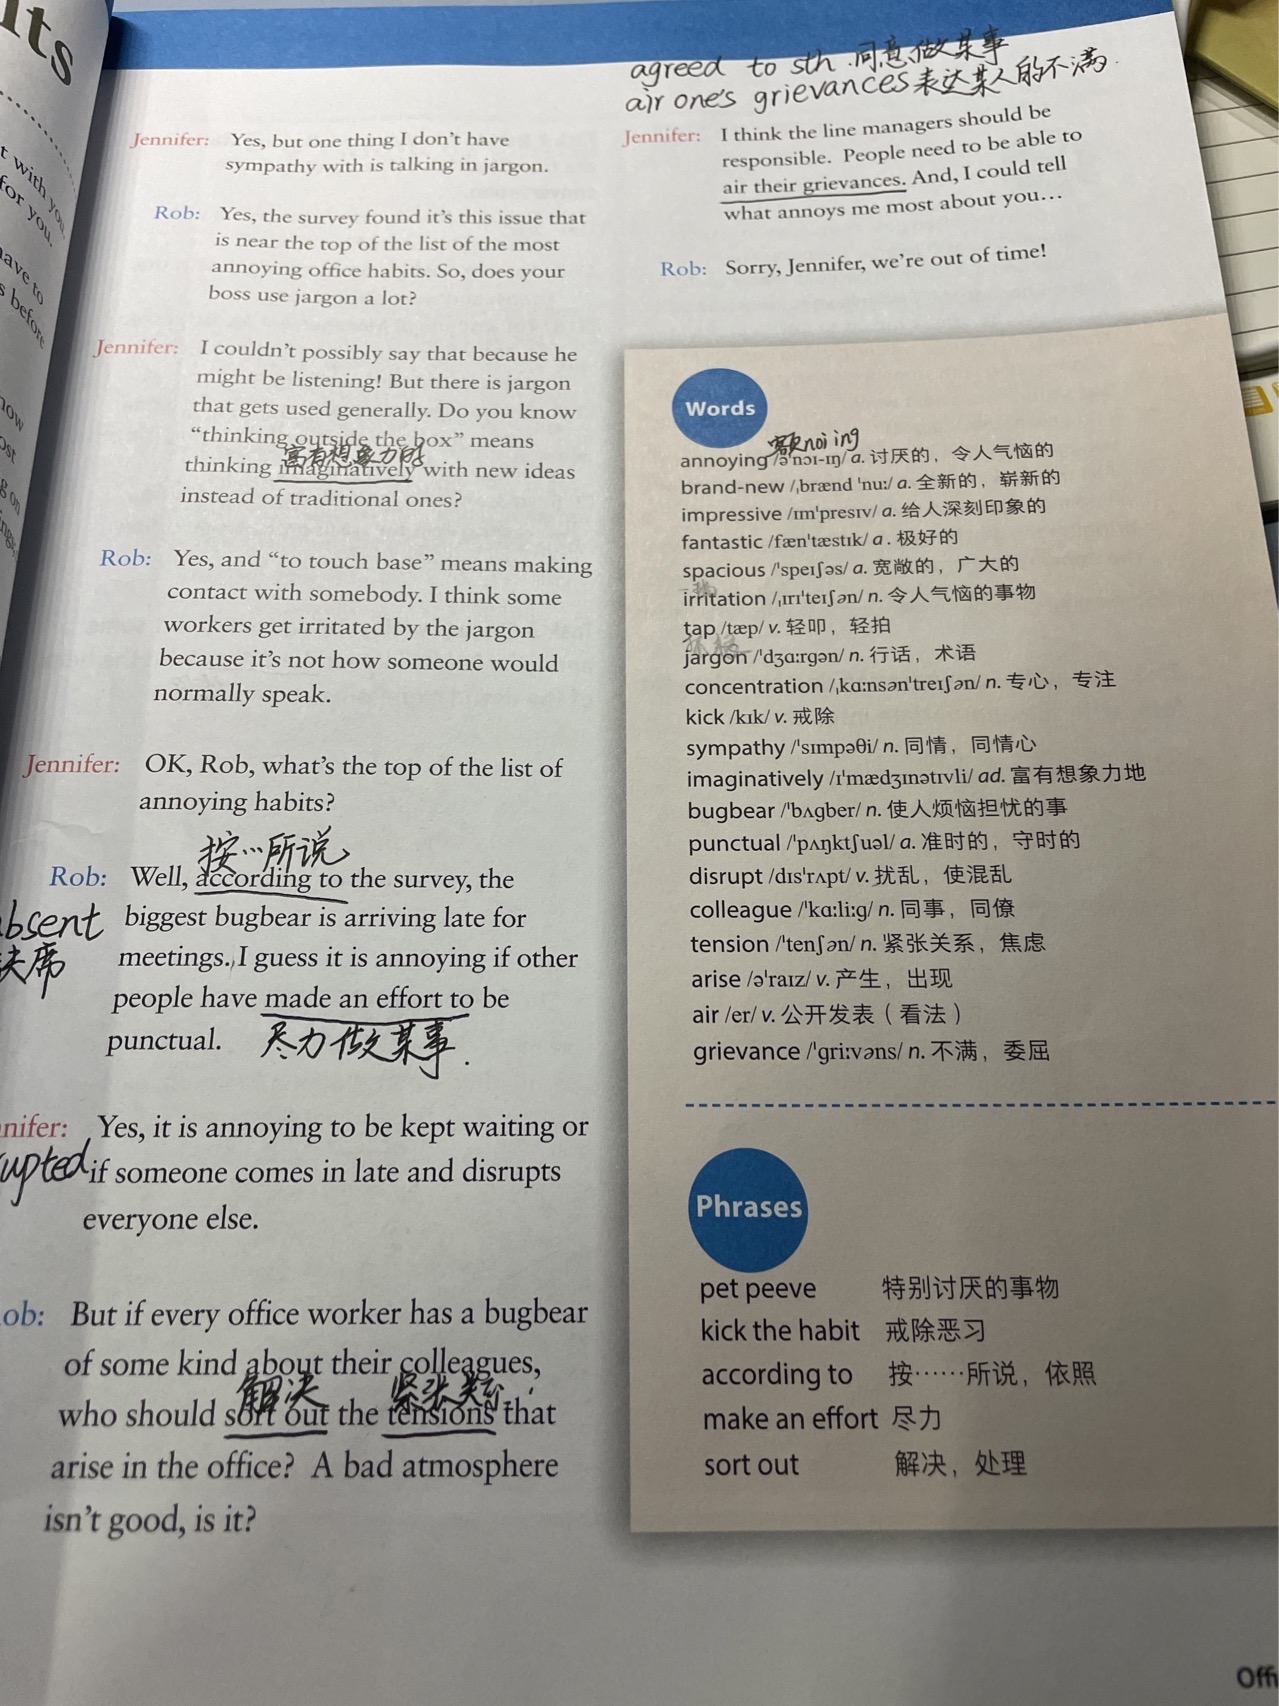 its
Jennifer: Yes, but one thing I don't have
sympathy with is talking in jargon.
Rob: Yes, the survey found it's this issue that
is near the top of the list of the most
annoying office habits. So, does your
boss use jargon a lot?
Jennifer: I couldn't possibly say that because he
might be listening! But there is jargon
that gets used generally. Do you know
“thinking outside the box” means
富有想象力的
thinking imaginatively with new ideas
instead of traditional ones?
Rob: Yes, and “to touch base” means making
contact with somebody. I think some
workers get irritated by the jargon
because it's not how someone would
normally speak.
Jennifer: OK, Rob, what's the top of the list of
annoying habits?
按…所说
Rob: Well, according to the survey, the
absent
biggest bugbear is arriving late for
缺席
meetings. I guess it is annoying if other
people have made an effort to be
punctual.
尽力做某事.
nnifer: Yes, it is annoying to be kept waiting or
upted
if someone comes in late and disrupts
everyone else.
ob: But if every office worker has a bugbear
of some kind about their colleagues,
解决 紧张关系
who should sort out the tensions that
arise in the office? A bad atmosphere
isn't good, is it?
agreed to sth 同意做某事
air one's grievances表达某人的不满.
Jennifer: I think the line managers should be
responsible. People need to be able to
air their grievances. And, I could tell
what annoys me most about you…
Rob: Sorry, Jennifer, we're out of time!
Words
annoying /ə'nɔɪ-ɪŋ/ a. 讨厌的，令人气恼的
brand-new /ˌbrænd 'nu:/ a. 全新的，崭新的
impressive /ɪm'presɪv/ a. 给人深刻印象的
fantastic /fæn'tæstɪk/ a. 极好的
spacious /'speɪʃəs/ a. 宽敞的，广大的
irritation /ˌɪrɪ'teɪʃən/ n. 令人气恼的事物
tap /tæp/ v. 轻叩，轻拍
jargon /'dʒɑ:rgən/ n. 行话，术语
concentration /ˌkɑ:nsən'treɪʃən/ n. 专心，专注
kick /kɪk/ v. 戒除
sympathy /'sɪmpəθi/ n. 同情，同情心
imaginatively /ɪ'mædʒɪnətɪvli/ ad. 富有想象力地
bugbear /'bʌgber/ n. 使人烦恼担忧的事
punctual /'pʌŋktʃuəl/ a. 准时的，守时的
disrupt /dɪs'rʌpt/ v. 扰乱，使混乱
colleague /'kɑ:li:g/ n. 同事，同僚
tension /'tenʃən/ n. 紧张关系，焦虑
arise /ə'raɪz/ v. 产生，出现
air /er/ v. 公开发表（看法）
grievance /'gri:vəns/ n. 不满，委屈
Phrases
pet peeve 特别讨厌的事物
kick the habit 戒除恶习
according to 按……所说，依照
make an effort 尽力
sort out 解决，处理
Offi